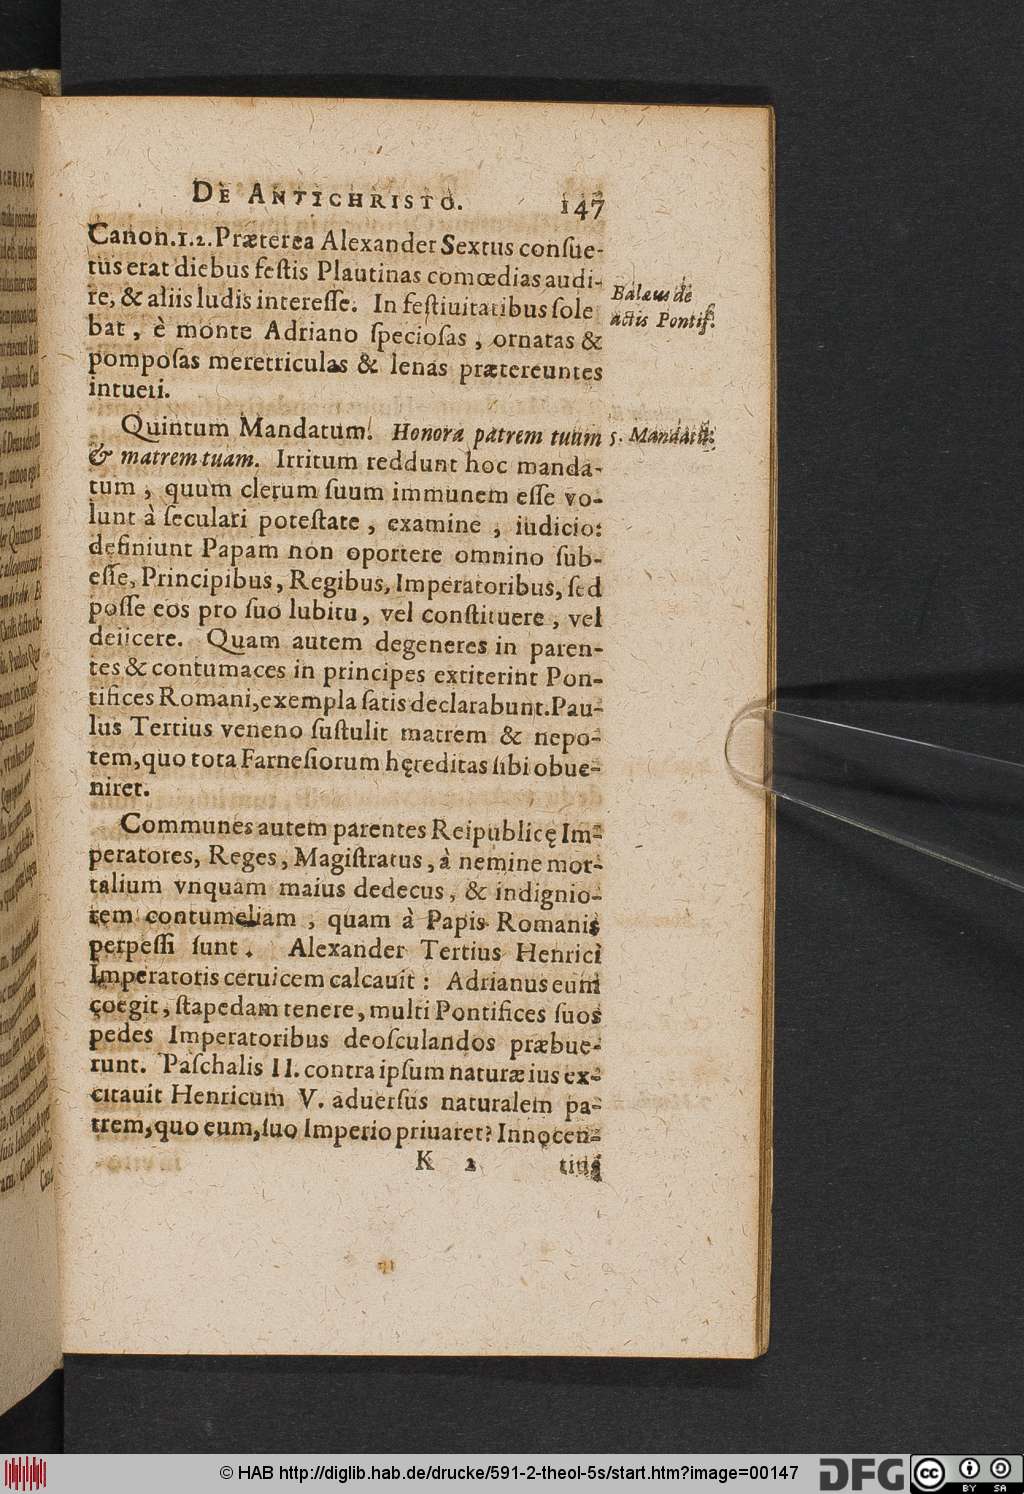 DE ANTICHRISTO. 147
Canon.1.2. Præterea Alexander Sextus consue-
tus erat diebus festis Plautinas comœdias audi-
re, & aliis ludis interesse. In festiuitatibus sole
bat, è monte Adriano speciosas, ornatas &
pomposas meretriculas & lenas prætereuntes
intueri.
Balæus de
actis Pontif.
Quintum Mandatum. Honora patrem tuum
& matrem tuam. Irritum reddunt hoc manda-
tum, quum clerum suum immunem esse vo-
lunt à seculari potestate, examine, iudicio:
definiunt Papam non oportere omnino sub-
esse, Principibus, Regibus, Imperatoribus, sed
posse eos pro suo lubitu, vel constituere, vel
deiicere. Quam autem degeneres in paren-
tes & contumaces in principes extiterint Pon-
tifices Romani, exempla satis declarabunt. Pau-
lus Tertius veneno sustulit matrem & nepo-
tem, quo tota Farnesiorum hęreditas sibi obue-
niret.
5. Mandatū.
Communes autem parentes Reipublicę Im-
peratores, Reges, Magistratus, à nemine mor-
talium vnquam maius dedecus, & indignio-
rem contumeliam, quam à Papis Romanis
perpessi sunt. Alexander Tertius Henrici
Imperatoris ceruicem calcauit: Adrianus eum
coegit, stapedam tenere, multi Pontifices suos
pedes Imperatoribus deosculandos præbue-
runt. Paschalis II. contra ipsum naturæ ius ex-
citauit Henricum V. aduersus naturalem pa-
trem, quo eum, suo Imperio priuaret? Innocen-
K 2 tius
© HAB http://diglib.hab.de/drucke/591-2-theol-5s/start.htm?image=00147
DFG
cc
BY SA